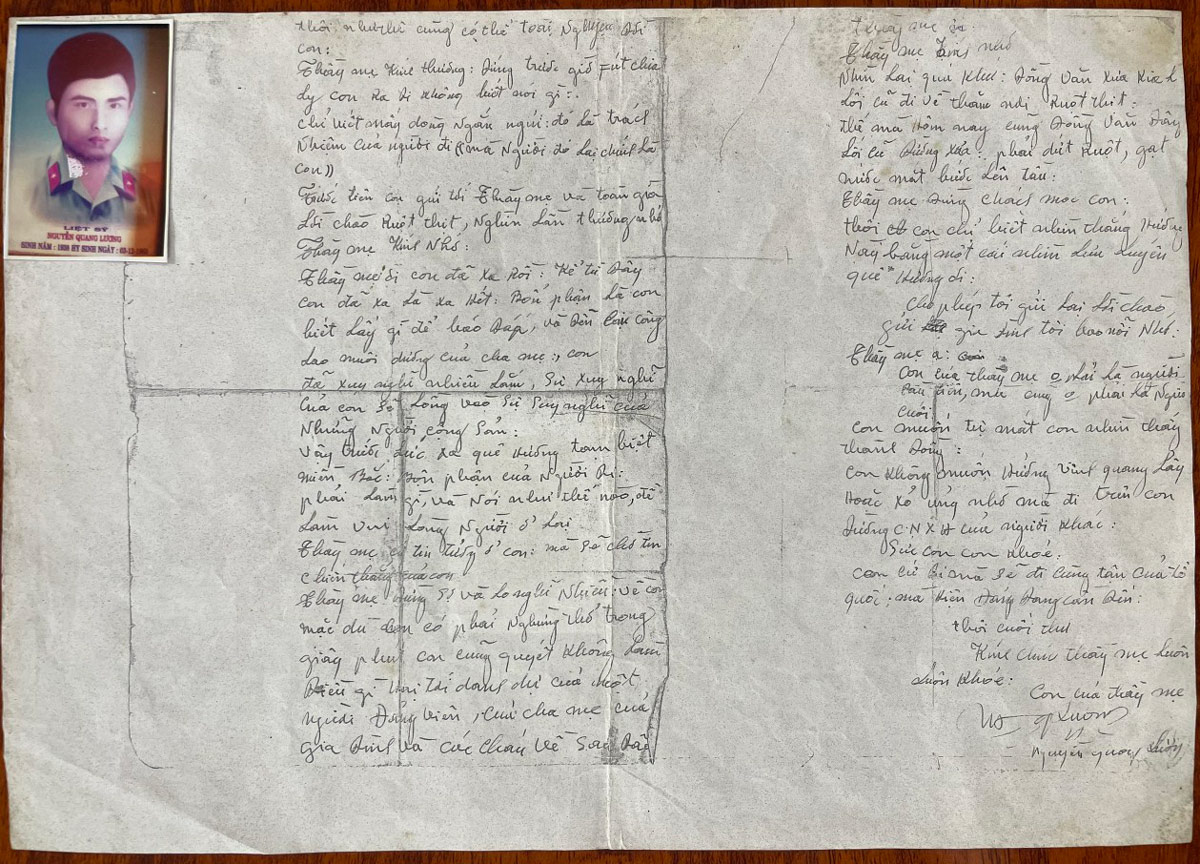 LIỆT SỸ
NGUYỄN QUANG LƯƠNG
SINH NĂM : HY SINH NGÀY :
thôi, như thế cũng có thể toại Nguyện đối
con:
Thầy mẹ kính thương: đứng trước giờ phút chia
ly con ra đi không biết nơi gì:.
chỉ viết mấy dòng Ngắn ngủi: đó là trách
nhiệm của người đi ((mà Người đó lại chính là
con))
Trước tiên con gửi tới Thầy mẹ và toàn gia
Lời chào Ruột thịt, Nghìn Lần thương nhớ
Thầy mẹ kính Nhớ:
Thầy mẹ ơi con đã xa rồi: Kể từ đây
con đã xa là xa hết: Bổn phận là con
biết lấy gì để báo đáp, và đền công
lao nuôi dưỡng của cha mẹ:, con
đã xuy nghĩ nhiều lắm, Sự xuy nghĩ
của con sẽ lồng vào sự suy nghĩ của
Những Người cộng Sản:
Vậy trước lúc xa quê hương tạm biệt
miền Bắc: Bổn phận của Người đi:
phải làm gì, và Nói như thế nào, để
làm vui lòng Người ở lại
Thầy mẹ tin tưởng ở con: mà sẽ chờ tin
chiến thắng của con
Thầy mẹ đừng sợ và lo nghĩ Nhiều: về con
mặc dù con có phải Ngừng thở trong
giây phút con cũng quyết không làm
điều gì hại tới danh dự của một
người Đảng viên, của cha mẹ của
gia đình và các cháu về sau
Thầy mẹ
Thầy mẹ kính nhớ
Nhìn lại quá khứ: Đồng Văn xưa kia
lối cũ đi về thăm nơi Ruột thịt:
thế mà hôm nay cũng Đồng Văn đây
Lối cũ đường xưa: phải dứt ruột, gạt
nước mắt bước lên tàu:
Thầy mẹ đừng trách móc con:
thôi con chỉ biết nhìn thẳng hướng
Nam bằng một cái nhìn lưu luyến
quê hương đi:
Cho phép tôi gửi lại lời chào,
gửi gia đình tôi bao nỗi Nhớ:
Thầy mẹ ạ:
Con của thầy mẹ o phải là người
đầu tiên, mà cũng o phải là Người
cuối
con muốn tự mắt con nhìn thấy
thành đồng:
con không muốn hưởng vinh quang lây
Hoặc xỏ ủng nhỏ mà đi trên con
đường C.N X H của người khác:
Sức con con khỏe:
con cứ đi mà sẽ đi cùng tận của tổ
quốc: mà hiện đang cần đến:
thôi cuối thư
Kính chúc thầy mẹ luôn
luôn khỏe:
Con của thầy mẹ
Nguyễn Quang Lương